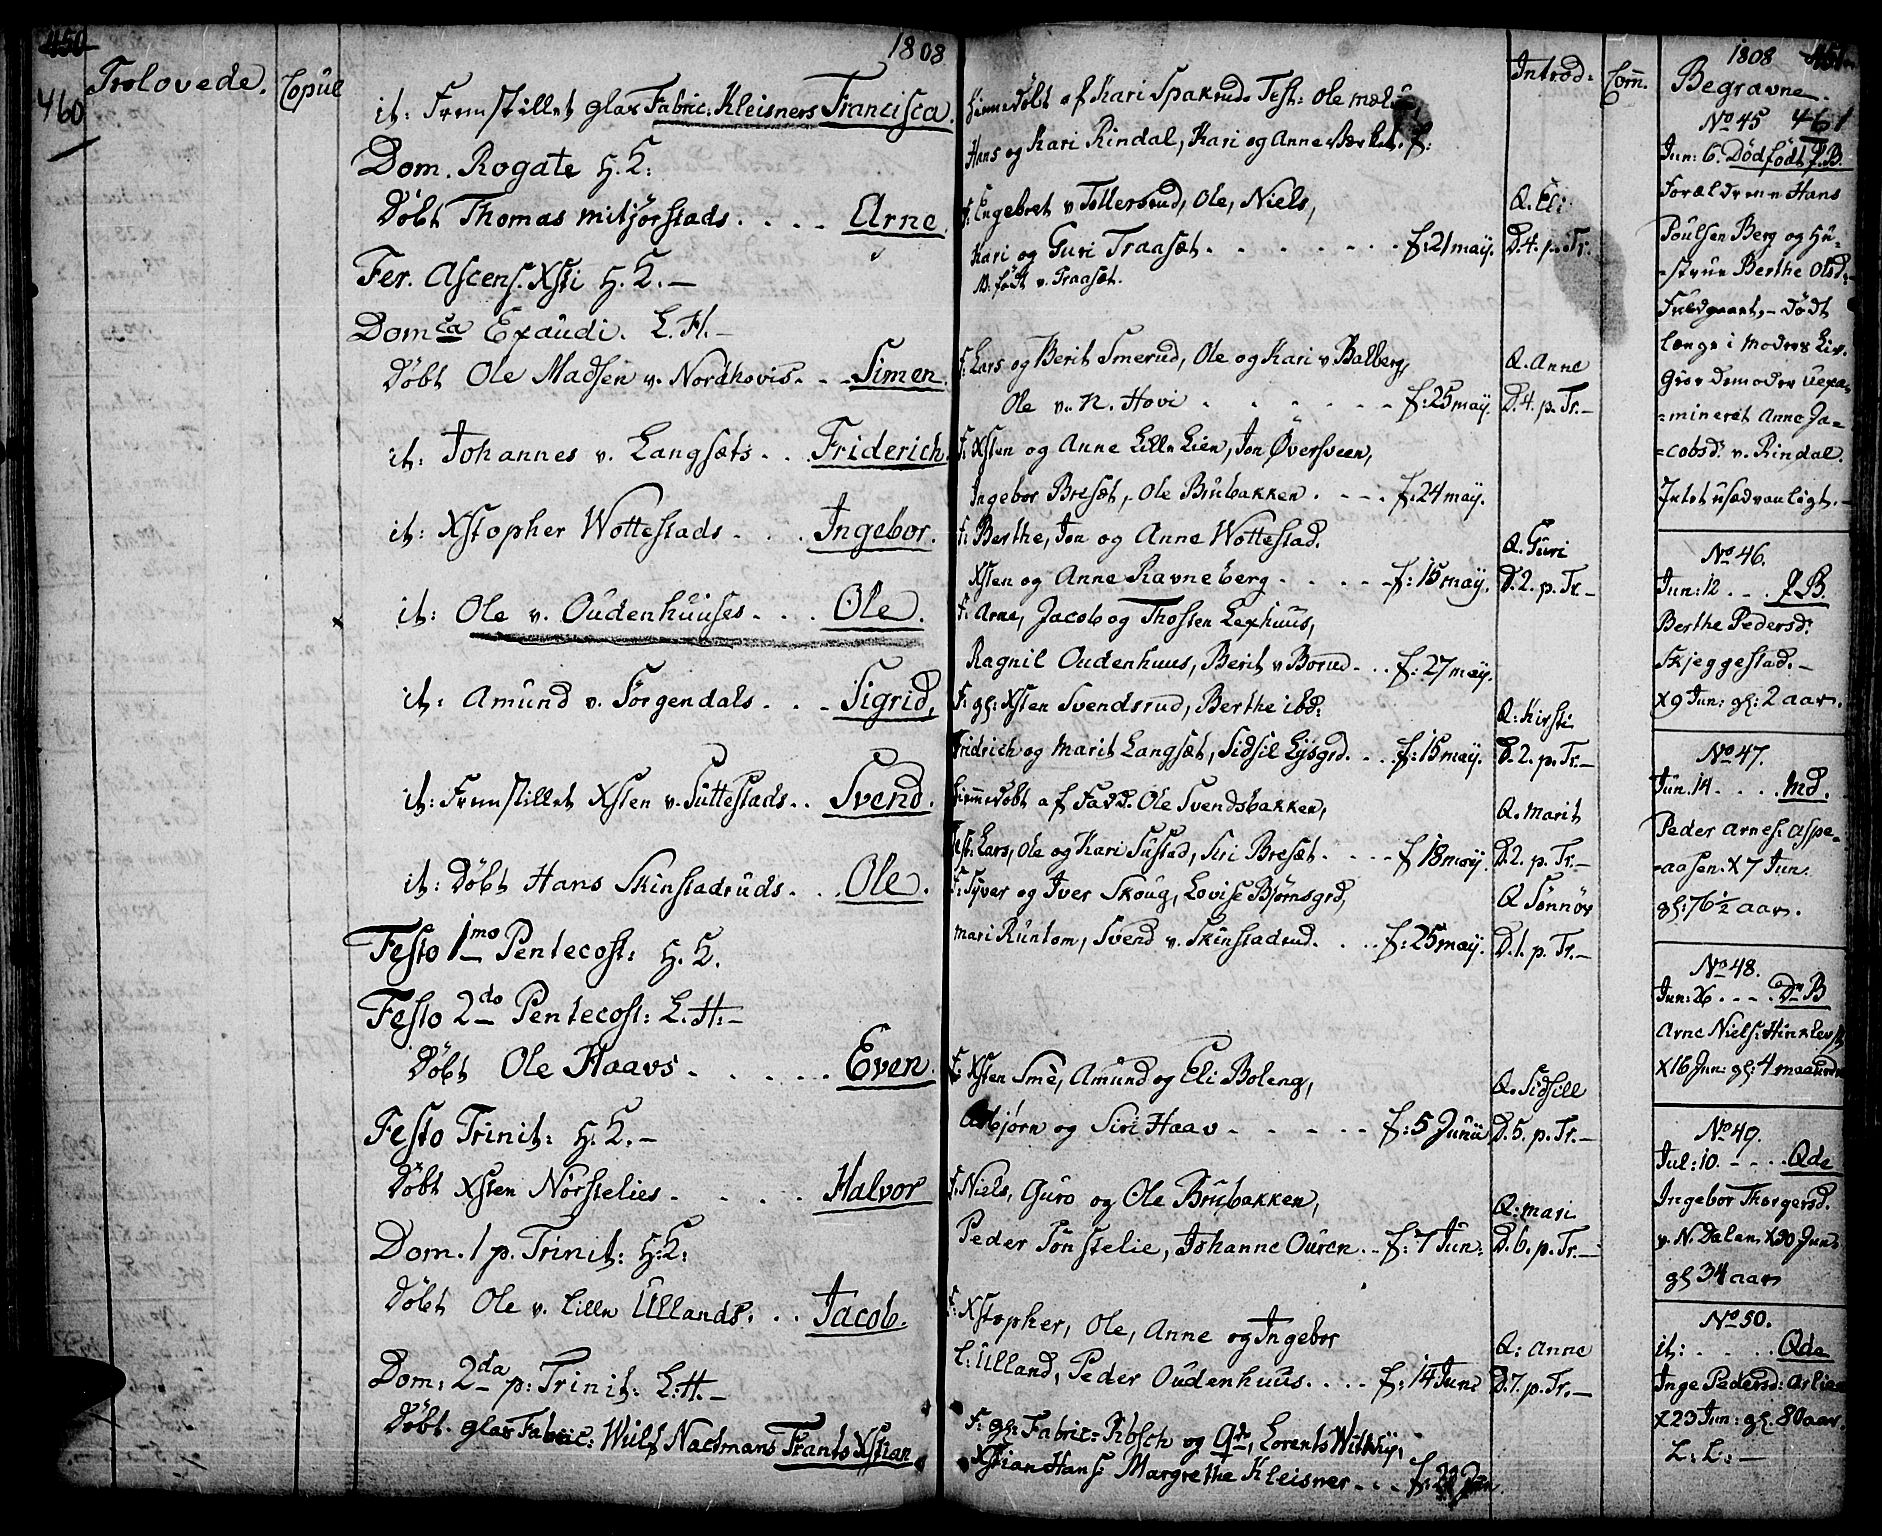 450
460
Trolovede.
Copul
1808
it: Fremstillet glas Fabric: Kleisners Francisca.
Dom. Rogate H. S:
Døbt Thomas Mitjørstads. . . . Arne.
Fer. Ascens. Xsti H. S. —
Domca Exaudi. L. H. —
Døbt Ole Madsen v. Nordhovis. . . Simen.
it: Johannes v. Langsæts. . . Friderich.
it: Xstopher Wottestads. . . . Ingebor.
it: Ole v. Oudenhuuses. . . . Ole.
it: Amund v. Sørgendals. . . . Sigrid.
it: Fremstillet Xsten v. Suttestads. . Svend.
it: Døbt Hans Skinstadruds. . . Ole.
Festo 1mo Pentecost: H. S.
Festo 2do Pentecost: L. H: —
Døbt Ole Haavs. . . . . . Even.
Festo Trinit: H. S. —
Døbt Xsten Nørstelies. . . . . Halvor
Dom. 1 p. Trinit: H. S:
Døbt Ole v. Lille Ullands. . . Jacob.
Dom: 2da p: Trinit: L. H. —
Døbt glas Fabric: Wulf Nactmans Frants Xstian
hiemedøbt af Kari Spakrud. Test: Ole
Hans og Kari Rindal, Kari og Anne
F: Engebret v Tollersrud, Ole, Niels,
Kari og Guri Traasæt. . . . . . . f: 21 maij.
B. født v. Traasæt.
F: Lars og Berit Smerud, Ole og Kari v Balberg,
Ole v. N. Hovi . . . . . . f: 25 maij.
F: Xsten og Anne Lille Lien, Jon Øversveen,
Ingebor Bresæt, Ole Brubakken. . . . f: 24 maij.
F: Berthe, Jon og Anne Wottestad.
Xsten og Anne Ravneberg . . . . . f: 15 maij.
F: Arne, Jacob og Thosten Lexhuus,
Ragnil Oudenhuus, Berit v Borud. . . f: 27 maij.
F: gl: Xsten Svendsrud, Berthe ibd:
Fridrich og Marit Langsæt, Sidsil Lysgrd. . . f: 15 maij.
hiemmedøbt af Fadd. Ole Svendsbakken,
Test: Lars, Ole og Kari Sustad, Siri Bresæt. . . . f 18 maij.
F: Syver og Iver Skoug, Lovise Bjørnsgrd,
Mari Runtom, Svend v. Skinstadrud. . . . f: 25 maij.
F: Xsten Smè, Amund og Eli Boleng,
Asbjørn og Siri Haav . . . . . f: 5 Junii
F: Niels, Guro og Ole Brubakken,
Peder Sønstelie, Johanne Ouren. . f: 7 Jun:
F: Xstopher, Ole, Anne og Ingebor
L: Ulland, Peder Oudenhuus. . . . f: 14 Juni
F: gl: Fabric: og Qde, Lorents
Xstian Hans: Margrethe Kleisner. . . f:
Introd:
Q. Eli
D. 4. p. Tr.
Q. Anne
D. 4. p. Tr. —
Q. Guri
D. 2. p. Tr. —
Q: Kirsti
D. 2. p. Tr. —
Q. Marit
D. 2. p. Tr. —
Q Sønnøv
D. 1. p. Tr. —
Q. Sidsill
D. 5. p. Tr. —
Q: Mari
D. 6. p. Tr. —
Q: Anne
D. 7. p. Tr. —
Com.
1808 451
Begravne.
No 45 461
Jun: 6. Dødfødt P.B.
Forældrene Hans
Poulsen Berg og Hu-
=strue Berthe Olsd.
Fuldgaaet, — Dødt
længe i Moders Liv.
Giordemoder uexa-
=mineret Anne Ja=
=cobsd: v. Rindal.
Intet usædvanligt. —
No 46.
Jun: 12 . . . P. B.
Berthe Pedersd:
Skjeggestad. —
X 9 Jun: gl: 2 aar.
No 47.
Jun. 14. . . . Md.
Peder Arnes: Aspe-
-aasen. X 7 Jun.
gl: 76 ½ aar.
No 48.
Jun: 26 . . . . Dr B
Arne Niels:
X 16 Jun: gl: 4 maaneder
No 49.
Jul: 10. . . . Qde
Ingebor Thorgersd.
v. N. Dalen X 30 Jun:
gl 34 aar
No 50.
it: . . . . . Qde
Inge Pedersd: Aslie
X 23 Jun: gl. 80 aar.
L: L: —